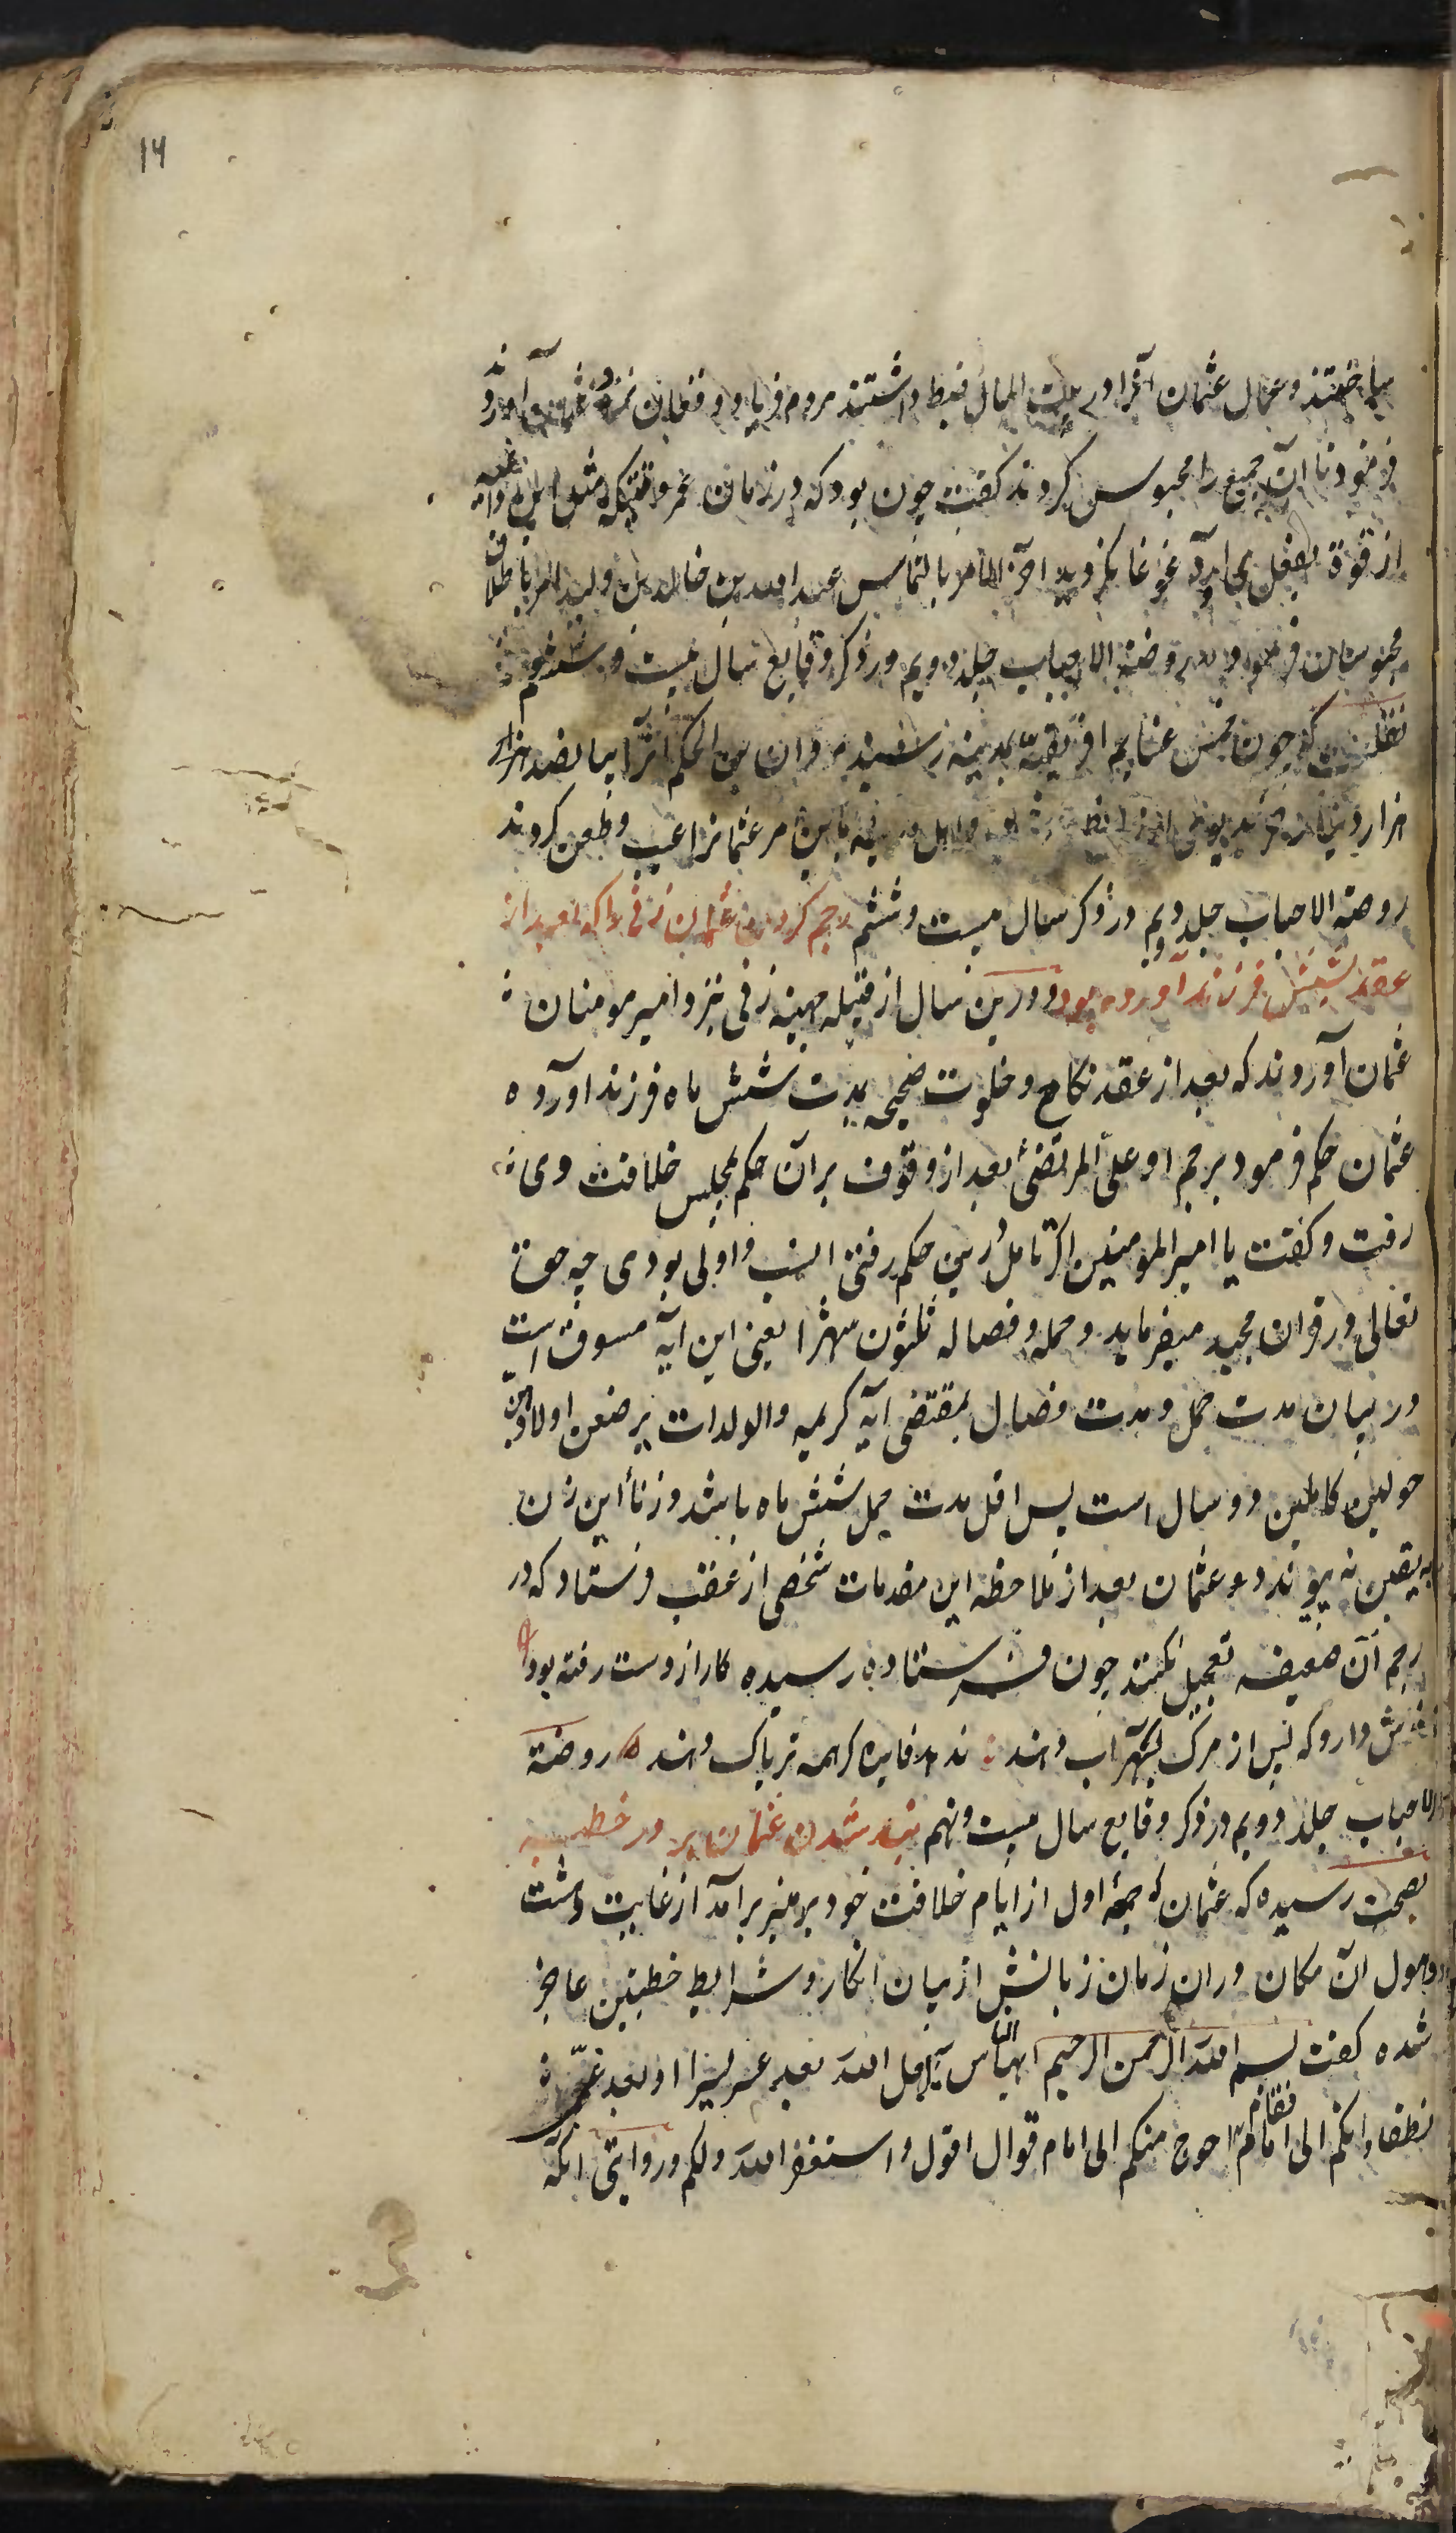 ۱۴
میاختند و عمال عثمان آنرا در بیت المال ضبط داشتند مردم فریاد و فغان نزد عثمان آوردند
فرمود تا آن جمیع را محبوس کردند کفت چون بود که در زمان عمر وقتیکه مثل این داعیه
از قوة بفعل می آمد غوغا نکردید آخر الامر بالتماس عبد الله بن خالد بن ولید امر باطلاق
محبوسان فرمود روضة الاحباب جلد دویم در ذکر وقایع سال بیست و ششم
که چون خمس غنایم افریقیه بمدینه رسید مروان بن الحکم آنرا بپانصد هزار
هزار دینار و اهل مدینه باین مر عثمانرا عیب و طعن کردند
روضة الاحباب جلد دویم در ذکر سال بیست و ششم رجم کردن عثمان زنی را که بعد از
عقد شش فرزند آورده بود و درین سال از قبیله جهینه زنی نزد امیر مومنان
عثمان آوردند که بعد از عقد نکاح و خلوت صحیحه بمدت شش ماه فرزند آورده
عثمان حکم فرمود برجم او علی المرتضی بعد از وقوف بر آن حکم بمجلس خلافت وی
رفت و کفت یا امیر المومنین اکر تامل درین حکم رفتی انسب و اولی بودی چه حق
تعالی در قران مجید میفرماید و حمله و فصاله ثلثون شهرا یعنی این آیه مسوق است
در بیان مدت حمل و مدت فصال بمقتضی آیه کریمه والوالدات یرضعن اولادهن
حولین کاملین دو سال است پس اقل مدت حمل شش ماه باشد و زنا این زن
به یقین نه پیوندد و عثمان بعد از ملاحظه این مقدمات شخصی از عقب فرستاد که در
رجم آن ضعیفه تعجیل نکنند چون فرستاده رسیده کار از دست رفته بود
نوش دارو که پس از مرک بسهراب دهند ندهد فایده کرهمه تریاک دهند روضة
الاحباب جلد دویم در ذکر وقایع سال بیست و نهم بند شدن عثمان بر در خطبه
بصحت رسیده که عثمان که جمعه اول از ایام خلافت خود بر منبر برآمد از غایت دهشت
و هول آن مکان در ان زمان زبانش از بیان ارکان و شرایط خطبتین عاجز
شده کفت بسم الله الرحمن الرحیم ایها الناس الله بعد عسر یسرا و بعد
نطقا و انکم الی امام فعال احوج منکم الی امام قوال اقول و استغفر الله و لکم و روایتی آنکه